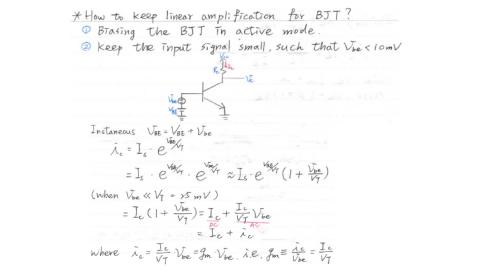 *How to keep linear amplification for BJT?
① Biasing the BJT in active mode.
② Keep the input signal small, such that Vbe < 10mV
Vc
Instaneous VBE = VBE + Vbe
ic = Is · e^(VBE/VT)
= Is · e^(VBE/VT) · e^(Vbe/VT) ≈ Is · e^(VBE/VT) (1 + Vbe/VT)
(when Vbe << VT = 25mV)
= Ic (1 + Vbe/VT) = Ic + Ic/VT Vbe
DC AC
= Ic + ic
where ic = Ic/VT Vbe = gm Vbe, i.e. gm ≡ ic/Vbe = Ic/VT